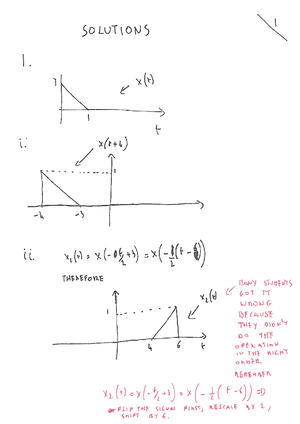 SOLUTIONS
1
1.
1
x(t)
1
t
i.
x(t+4)
1
-4
-3
ii.
x₂(t) = x(-t/2+3) = x(-½(t-6))
THEREFORE
x₂(t)
1
4
6
t
MANY STUDENTS
GOT IT
WRONG
BECAUSE
THEY DIDN'T
DO THE
OPERATION
IN THE RIGHT
ORDER.
REMEMBER
x₂(t) = x(-t/2+3) = x(-½(t-6)) =>
FLIP THE SIGNAL FIRST, RESCALE BY 2,
SHIFT BY 6.